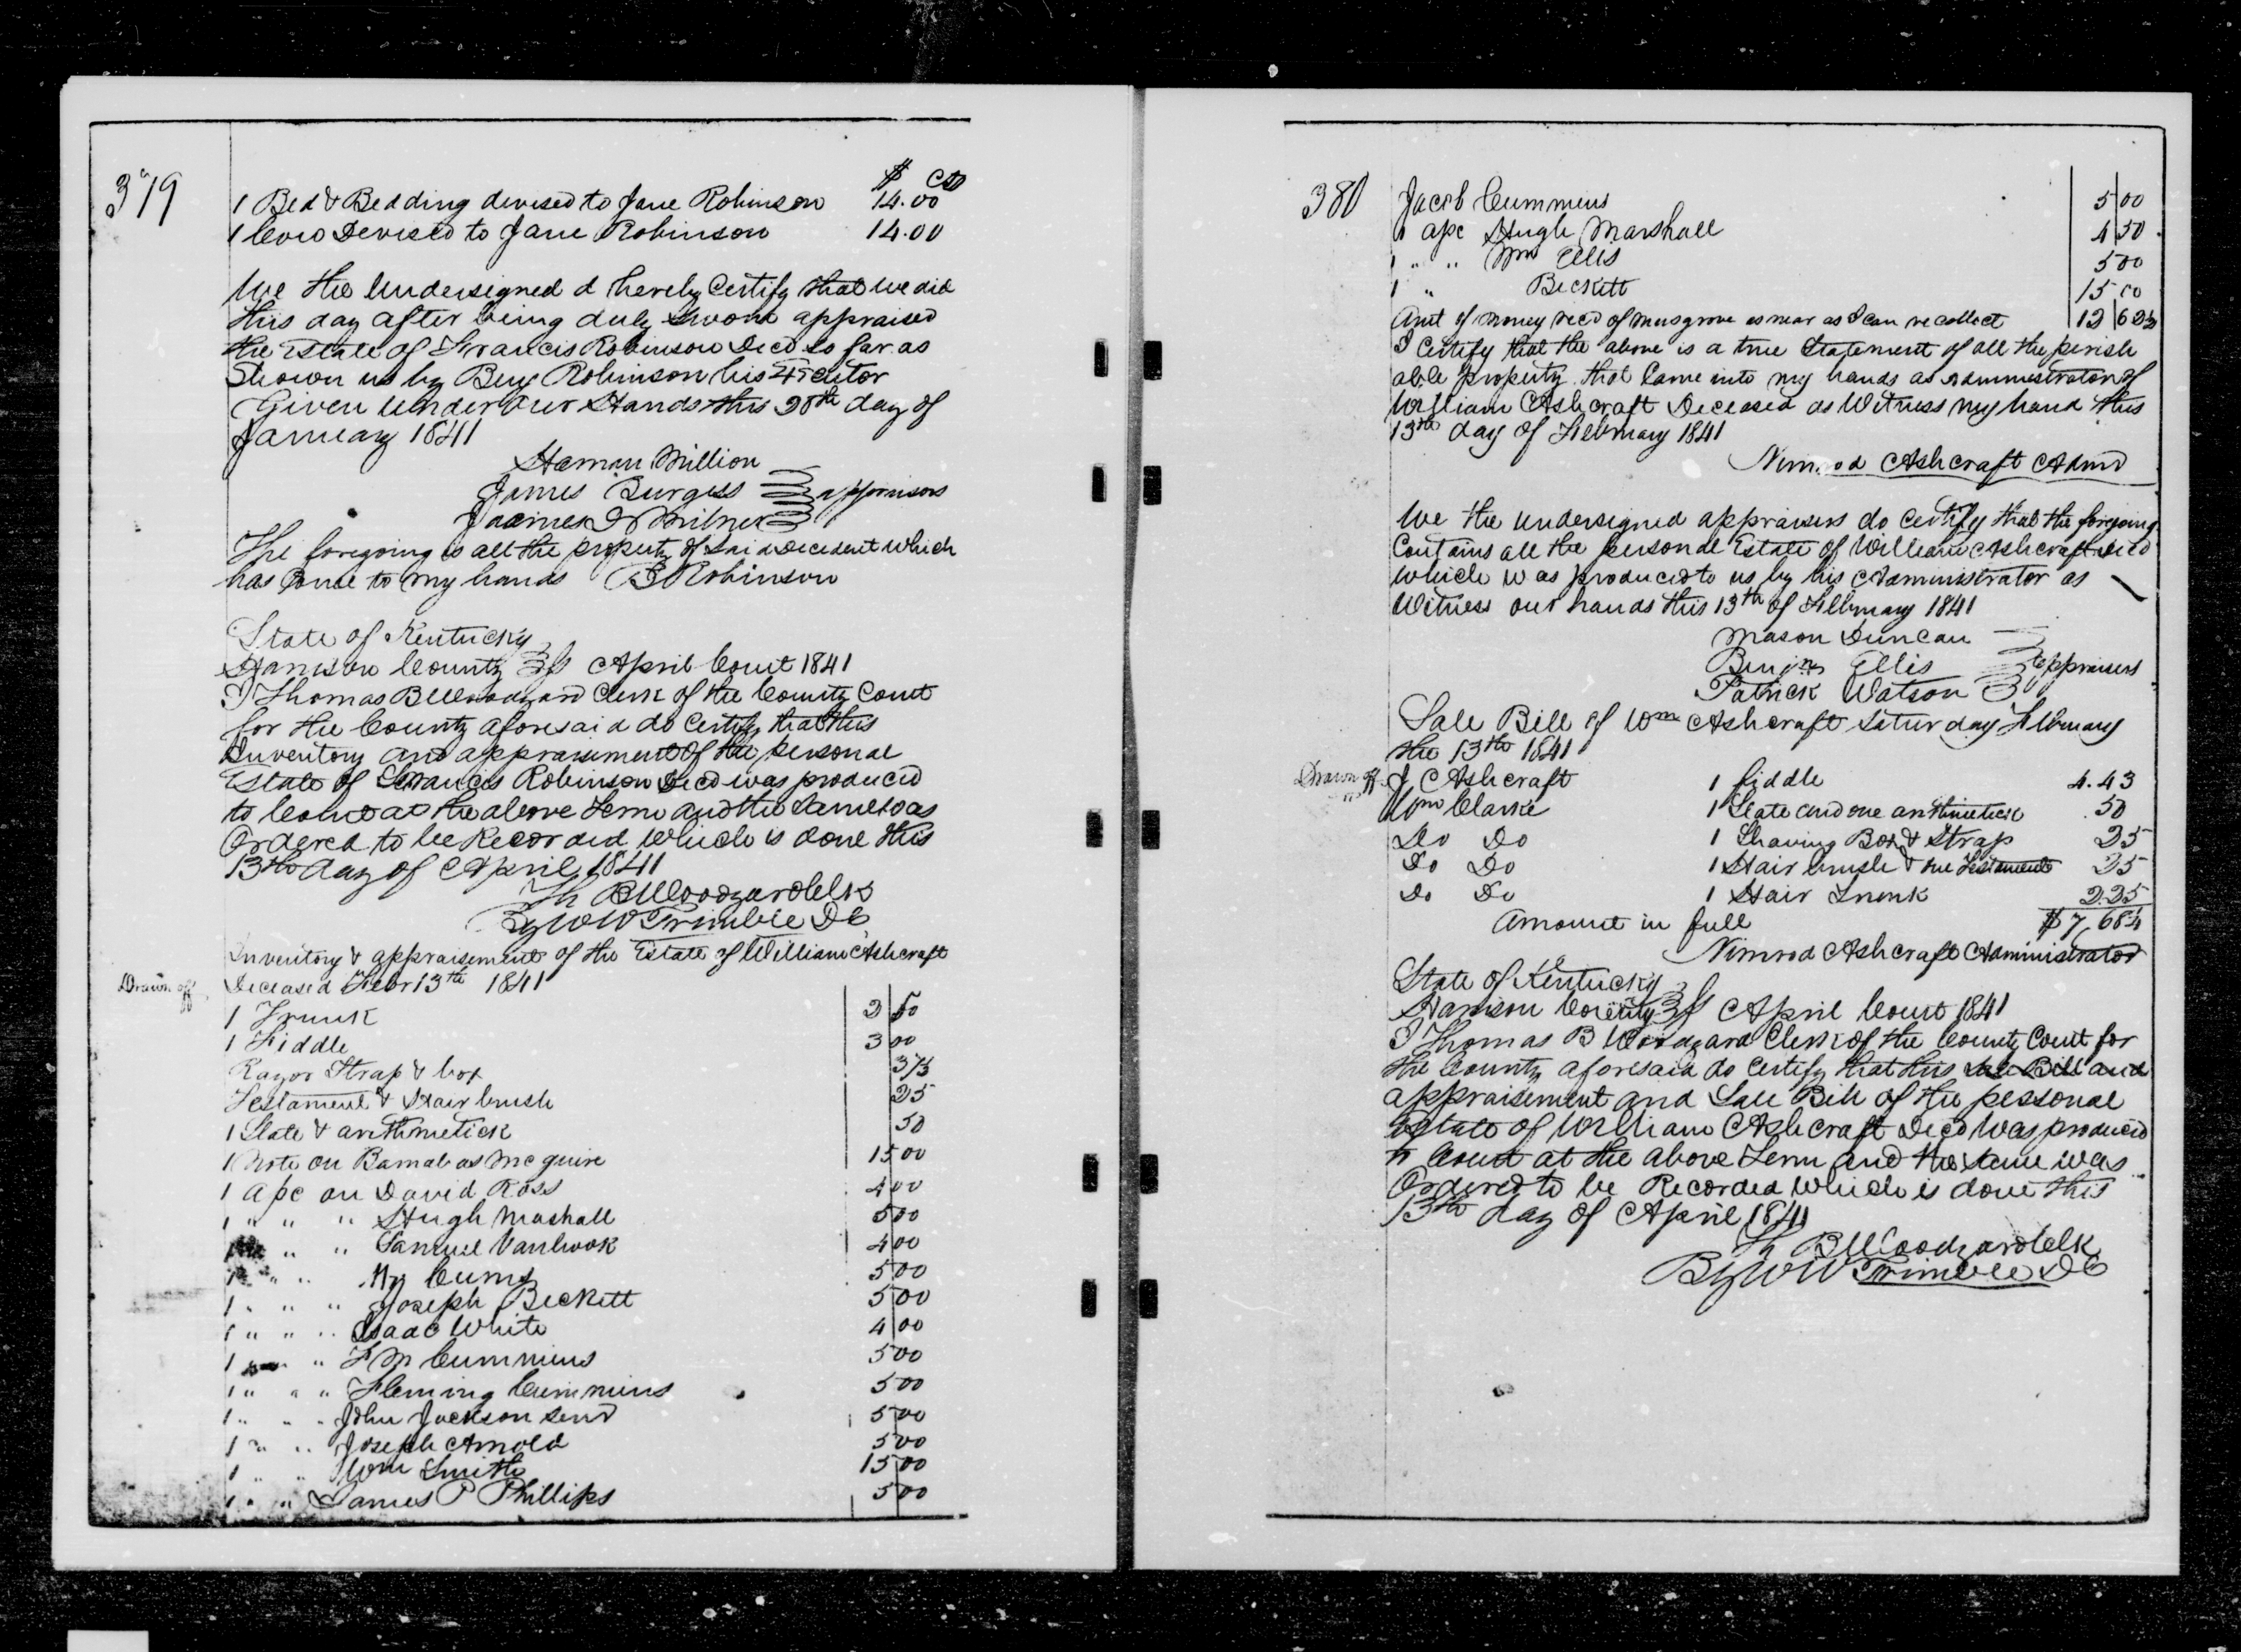 379
$ cts
1 Bed & Bedding devised to Jane Robinson 14.00
1 Cow Devised to Jane Robinson 14.00
We the Undersigned d hereby Certify that we did
this day after being duly Sworn appraised
the Estate of Francis Robinson Decd so far as
Shown us by Benj Robinson his Executor
Given under our Hands this 28th day of
January 1841
Haman Million
James Burgess appraisors
James D Milner
The foregoing is all the property of said decedent which
has Come to my hands B Robinson
State of Kentucky
Harrison County Sct April Court 1841
I Thomas B Woodyard Clerk of the County Court
for the County aforesaid do Certify that this
Inventory and appraisement of the personal
Estate of Francis Robinson Decd was produced
to Court at the above Term and the same was
Ordered to be Recorded which is done this
13th day of April 1841
Th B Woodyard Clk
By W W Trimble DC
Inventory & appraisement of the Estate of William Ashcraft
Drawn off Deceased Febr 13th 1841
1 Trunk 2 50
1 Fiddle 3 00
Razor Strap & box 37½
Testament & Hair brush 25
1 Slate & arithmetick 50
1 Note on Barnabas McGuire 15 00
1 apc on David Ross 4 00
1 " " " Hugh Mashall 5 00
1 " " " Samuel Vanhook 4 00
1 " " 5 00
1 " " " Joseph Beckett 5 00
1 " " " Isaac White 4 00
1 " " F M Cummins 5 00
1 " " " Fleming Cummins 5 00
1 " " " John Jackson senr 5 00
1 " " " Joseph Arnold 5 00
1 " " Wm Smith 15 00
1 " " James P Phillips 5 00
380
Jacob Cummins 5 00
1 apc Hugh Marshall 4 50
1 " " Wm Ellis 5 00
1 " Beckett 15 00
Amt of money recd of Musgrove as near as I can recollect 12 62½
I Certify that the above is a true Statement of all the perish
able property that Came into my hands as administrator of
William Ashcraft Deceased as Witness my hand this
13th day of February 1841
Nimrod Ashcraft Admr
We the undersigned appraisers do Certify that the foregoing
Contains all the personal Estate of William Ashcraft Decd
which was produced to us by his Administrator as
Witness our hands this 13th of February 1841
Mason Duncan
Benjn Ellis appraisers
Patrick Watson
Sale Bill of Wm Ashcraft Saturday February
the 13th 1841
Drawn off J C Ashcraft 1 fiddle 4.43
" Wm Clarke 1 Slate and one arithmetick .50
Do Do 1 Shaving Box & Strap 25
Do Do 1 Hair brush & one Testament 25
Do Do 1 Hair Trunk 2.25
Amount in full $7,68
Nimrod Ashcraft Administrator
State of Kentucky
Harrison County Sct April Court 1841
I Thomas B Woodyard Clerk of the County Court for
the County aforesaid do Certify that this Sale Bill and
appraisement and Sale Bill of the personal
Estate of William Ashcraft Decd was produced
to Court at the above Term and the same was
Ordered to be Recorded which is done this
13th day of April 1841
Th B Woodyard Clk
By W W Trimble DC